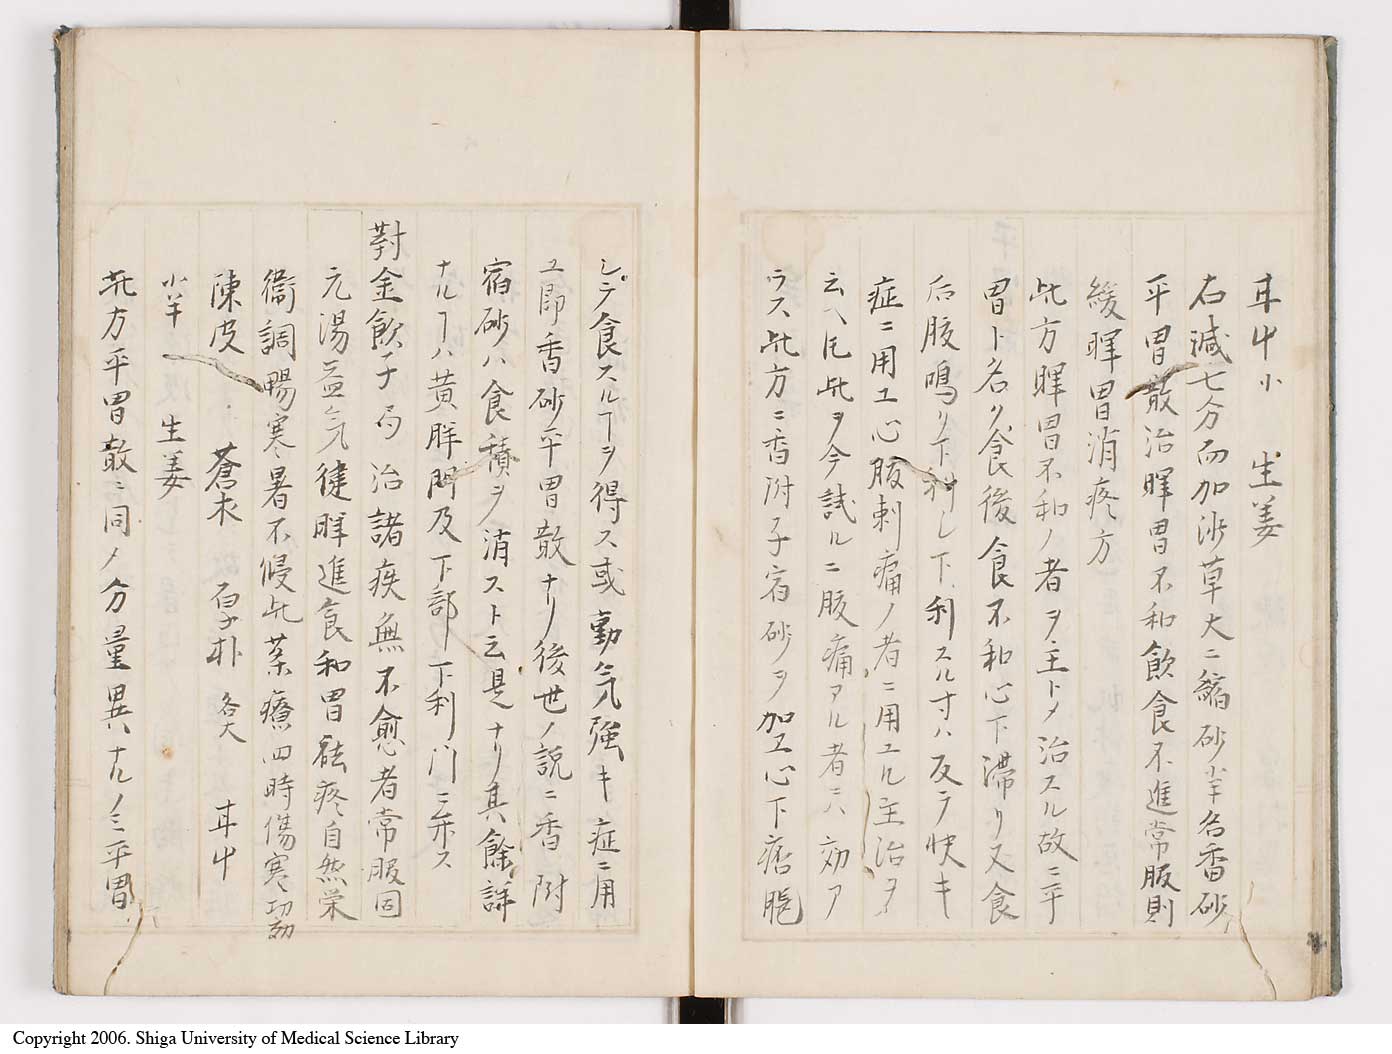 甘屮小　生姜
右減七分而加沙草大ニ縮砂小半名香砂
平胃散治脾胃不和飲食不進常服則
緩脾胃消疼方
此方脾胃不和ノ者ヲ主トメ治スル故ニ平
胃ト名ク食後食不和心下滞リ又食
后腹鳴リ下利シ下利スル寸ハ反テ快キ
症ニ用エ心腹刺痛ノ者ニ用エル主治ヲ
云ヘ𪜈此ヲ今試ルニ腹痛アル者ニハ効ア
ラス此方ニ香附子宿砂ヲ加エ心下痞
シテ食スルヿヲ得ス或動気強キ症ニ用
ユ即香砂平胃散ナリ後世ノ説ニ香附
宿砂ハ食積ヲ消スト云是ナリ其餘詳
ナルヿハ黄胖門及下部下利門ニ弁ス
對金飲子 局 治諸疾無不愈者常服固
元湯益気健脾進食和胃祛疼自然栄
衞調暢寒暑不侵此薬療四時傷寒功効
陳皮　蒼朮　厚朴 各大　甘屮
小半　生姜
此方平胃散ニ同メ分量異ナルノミ平胃
Copyright 2006. Shiga University of Medical Science Library